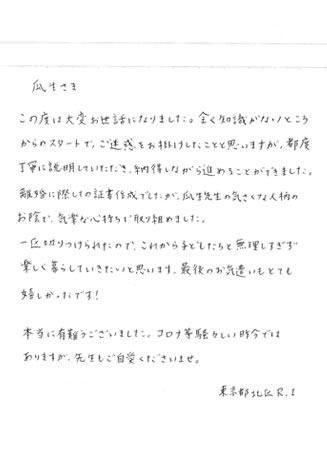 瓜生さま
この度は大変お世話になりました。全く知識がないところ
からのスタートで、ご迷惑をお掛けしたことと思いますが、都度
丁寧に説明していただき、納得しながら進めることができました。
離婚に際しての証書作成でしたが、瓜生先生の気さくな人柄の
お陰で、気楽な心持ちで取り組めました。
一区切りつけられたので、これから子どもたちと無理しすぎず
楽しく暮らしていきたいと思います。最後のお気遣いもとても
嬉しかったです!
本当に有難うございました。コロナ等騒々しい昨今では
ありますが、先生もご自愛くださいませ。
東京都北区 R.I